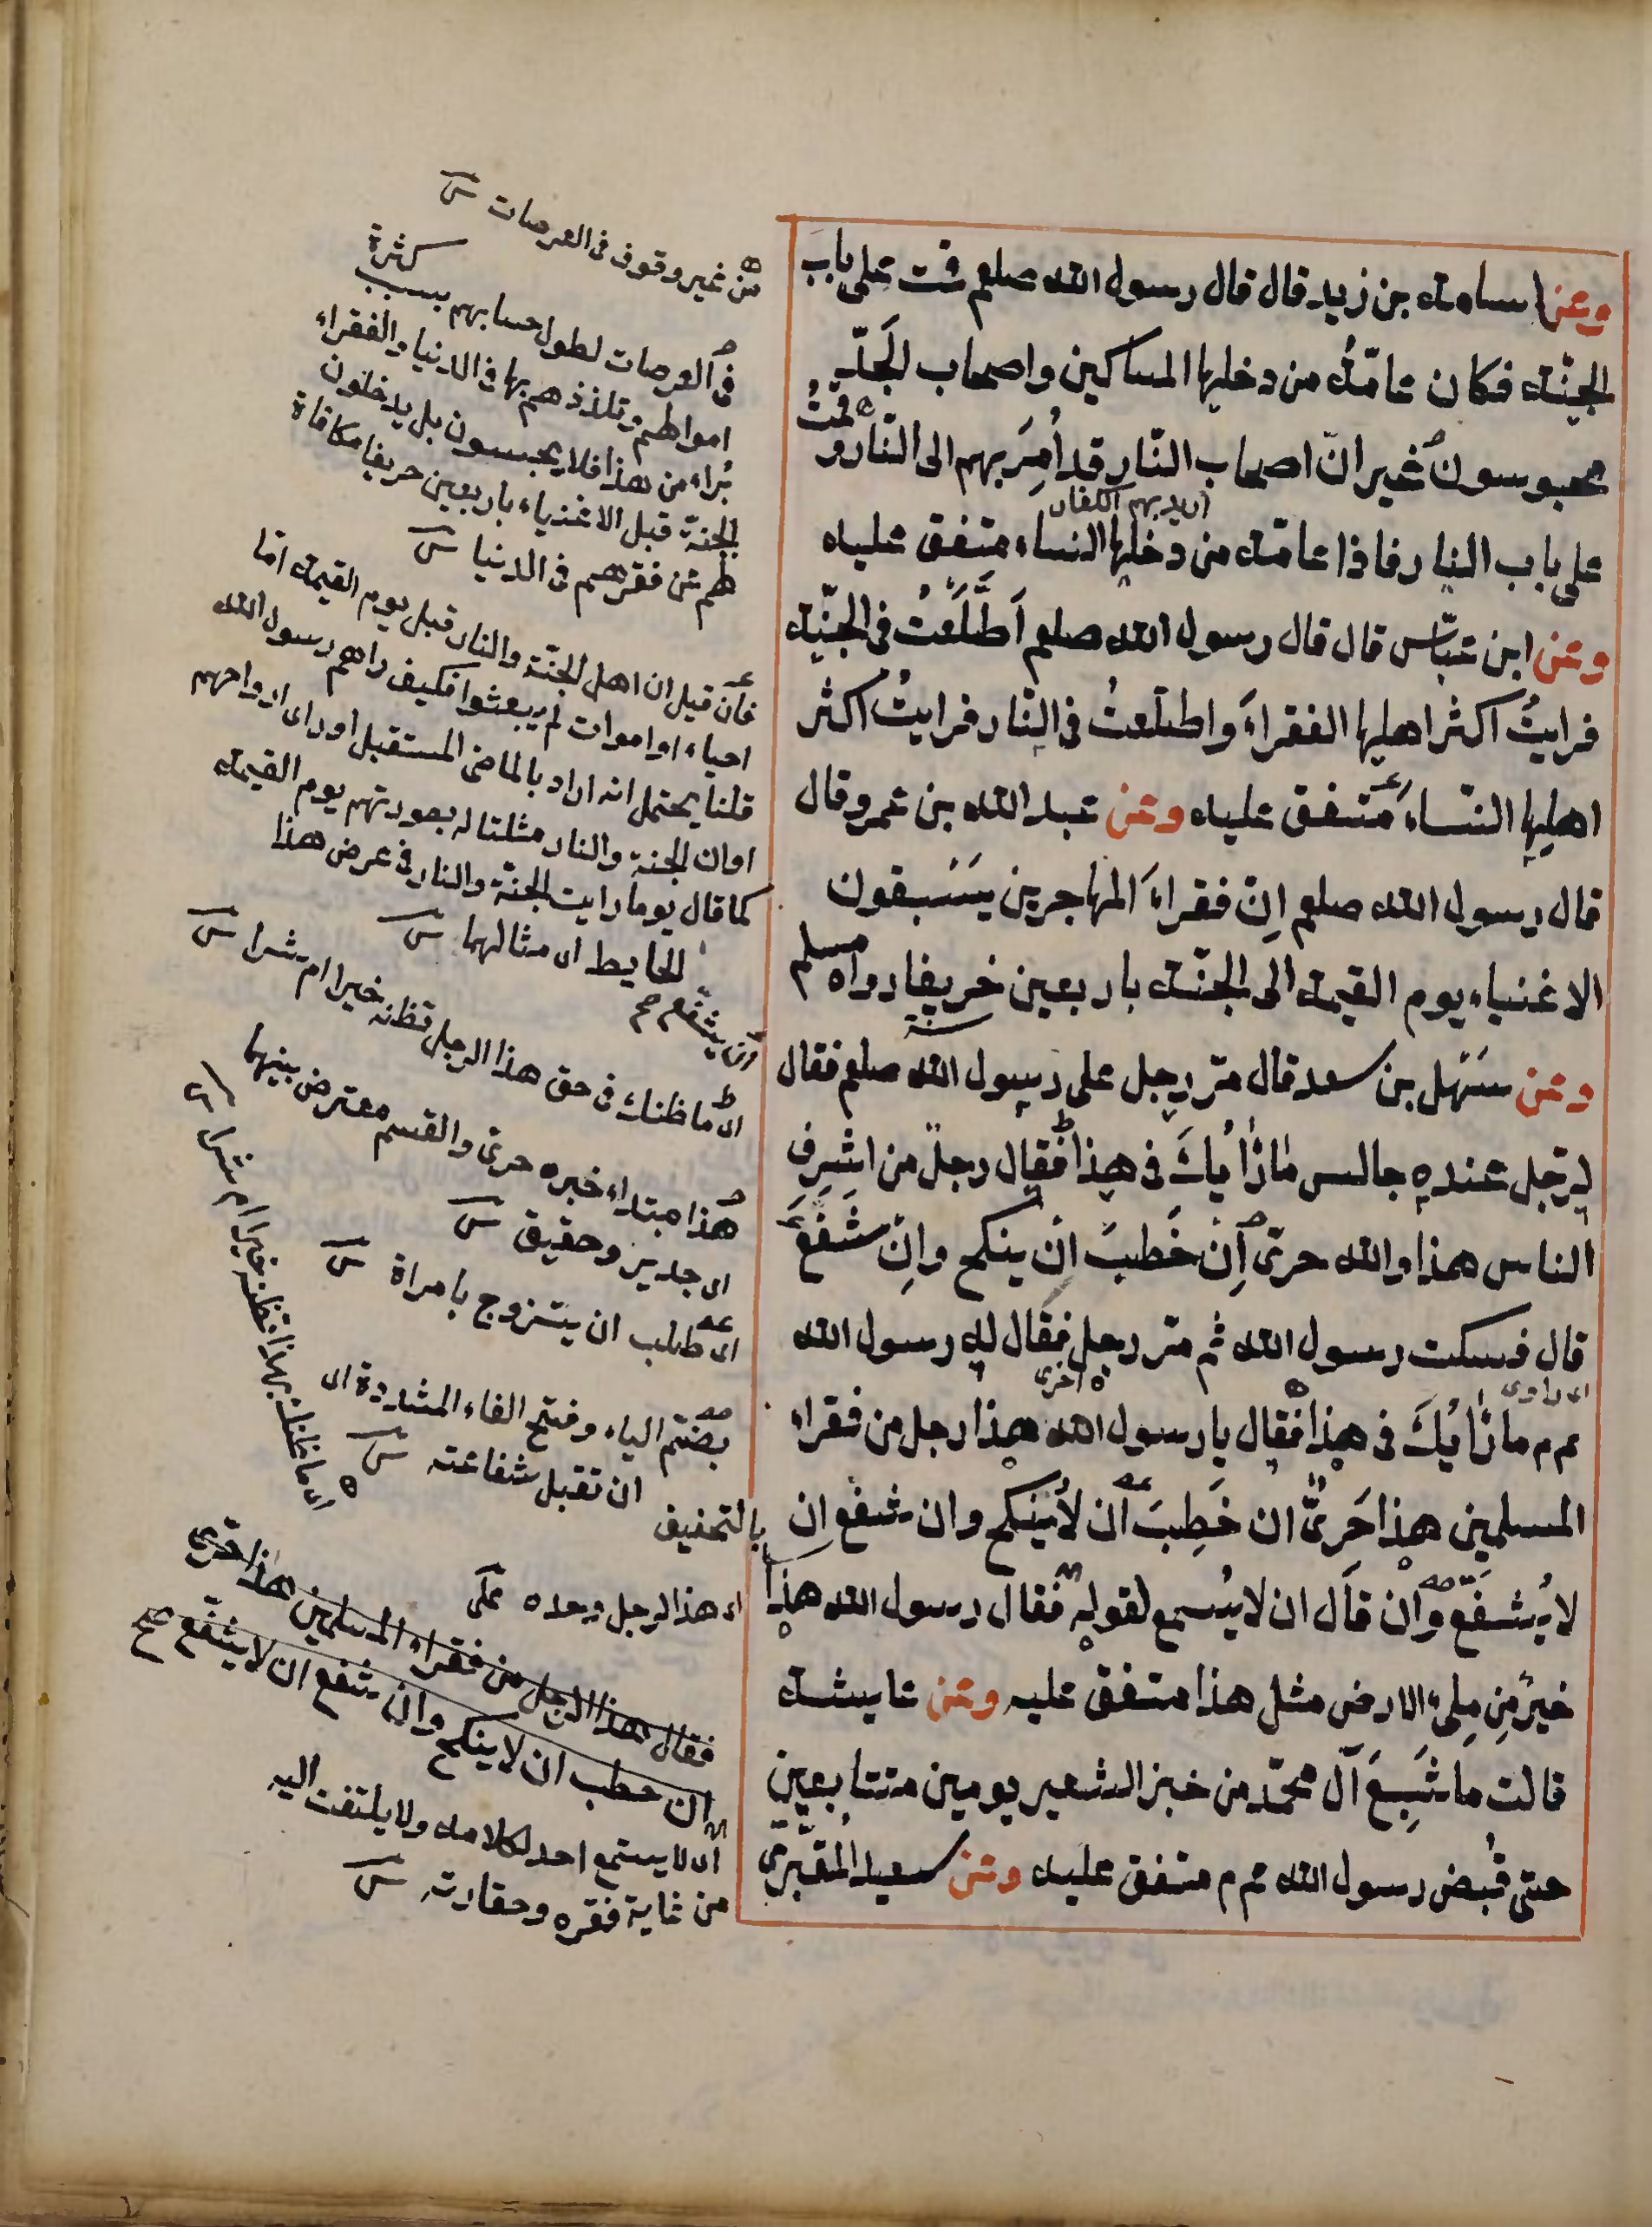 وعن اسامة بن زيد قال قال رسول الله صلعم قمت على باب
الجنّة فكان عامّةُ من دخلها المساكين واصحاب الجَدّ
محبوسون غير انّ اصحاب النّار قد اُمِرَ بهم الى النّار و قمتُ
اريد بهم الكفار
على باب النار فاذا عامّة من دخلها النساء متفق عليه
وعن ابن عبّاس قال قال رسول الله صلعم اَطَّلَعْتُ فى الجنّة
فرايتُ اكثر اهلها الفقراءَ واطلعتُ فى النّار فرايتُ اكثر
اهلها النّساء متفق عليه وعن عبد الله بن عمرو قال
قال رسول الله صلعم اِنّ فقراءَ المهاجرين يسبقون
الاغنياء يوم القيمة الى الجنّة باربعين خريفا رواه مسلم
سنة
وعن سَهْل بن سعد قال مرّ رجل على رسول الله صلعم فقال
لرجل عنده جالس ما رَأْيُكَ فى هذا فقال رجل من اشرف
الناس هذا والله حرىّ اِنْ خَطبَ انْ ينكح وانْ شَفَعَ
قال فسكت رسول الله ثم مرّ رجل فقال له رسول الله
اى راوى
اخرى
عم ما رَأْيُكَ فى هذا فقال يا رسول الله هذا رجل من فقراء
المسلمين هذا حَرِىٌّ ان خَطبَ ان لا يُنكح وان شفع ان
لا يُشَفَّع وان قال ان لا يُسمع لقوله فقال رسول الله هذا
خيرٌ مِن مِلىء الارض مثل هذا متفق عليه وعن عايشة
قالت ما شَبِعَ آل محمّد من خبز الشعير يومين متتابعين
حتى قُبض رسول الله عم متفق عليه وعن سعيد المقبُرىّ
من غير وقوف فى العرصات
فى العرصات لطول حسابهم بسبب كثرة
اموالهم وتلذذهم بها فى الدنيا والفقراء
بُراء من هذا فلا يحبسون بل يدخلون
الجنّة قبل الاغنياء باربعين خريفا مكافاة
لهم عن فقرهم فى الدنيا
فان قيل ان اهل الجنّة والنار قبل يوم القيمة اما
احياء او اموات لم يبعثوا فكيف راهم رسول الله
قلنا يحتمل انه اراد بالماضى المستقبل او راى ارواحهم
او ان الجنة والنار مثلتا له بصورتهم يوم القيمة
كما قال يوما رايت الجنّة والنار فى عرض هذا
الحايط اى مثالهما
ان يشفع صح
اى ما ظنك فى حق هذا الرجل تظنه خيرا ام شرا
هذا مبتداء خبره حرى والقسم معترض بينهما
اى جدير وحقيق
اى طلب ان يتزوج بامراة
بضم الياء وفتح الفاء المشددة اى
ان تقبل شفاعته
بالتخفيف
اى ما ظنك بهذا تظنه خيرا ام شرا
اى هذا الرجل وحده
فقال هذا الرجل من فقراء المسلمين هذا حرى
ان خطب ان لا ينكح وان شفع ان لا يشفّع صح
اى لا يستمع احد لكلامه ولا يلتفت اليه
من غاية فقره وحقارته